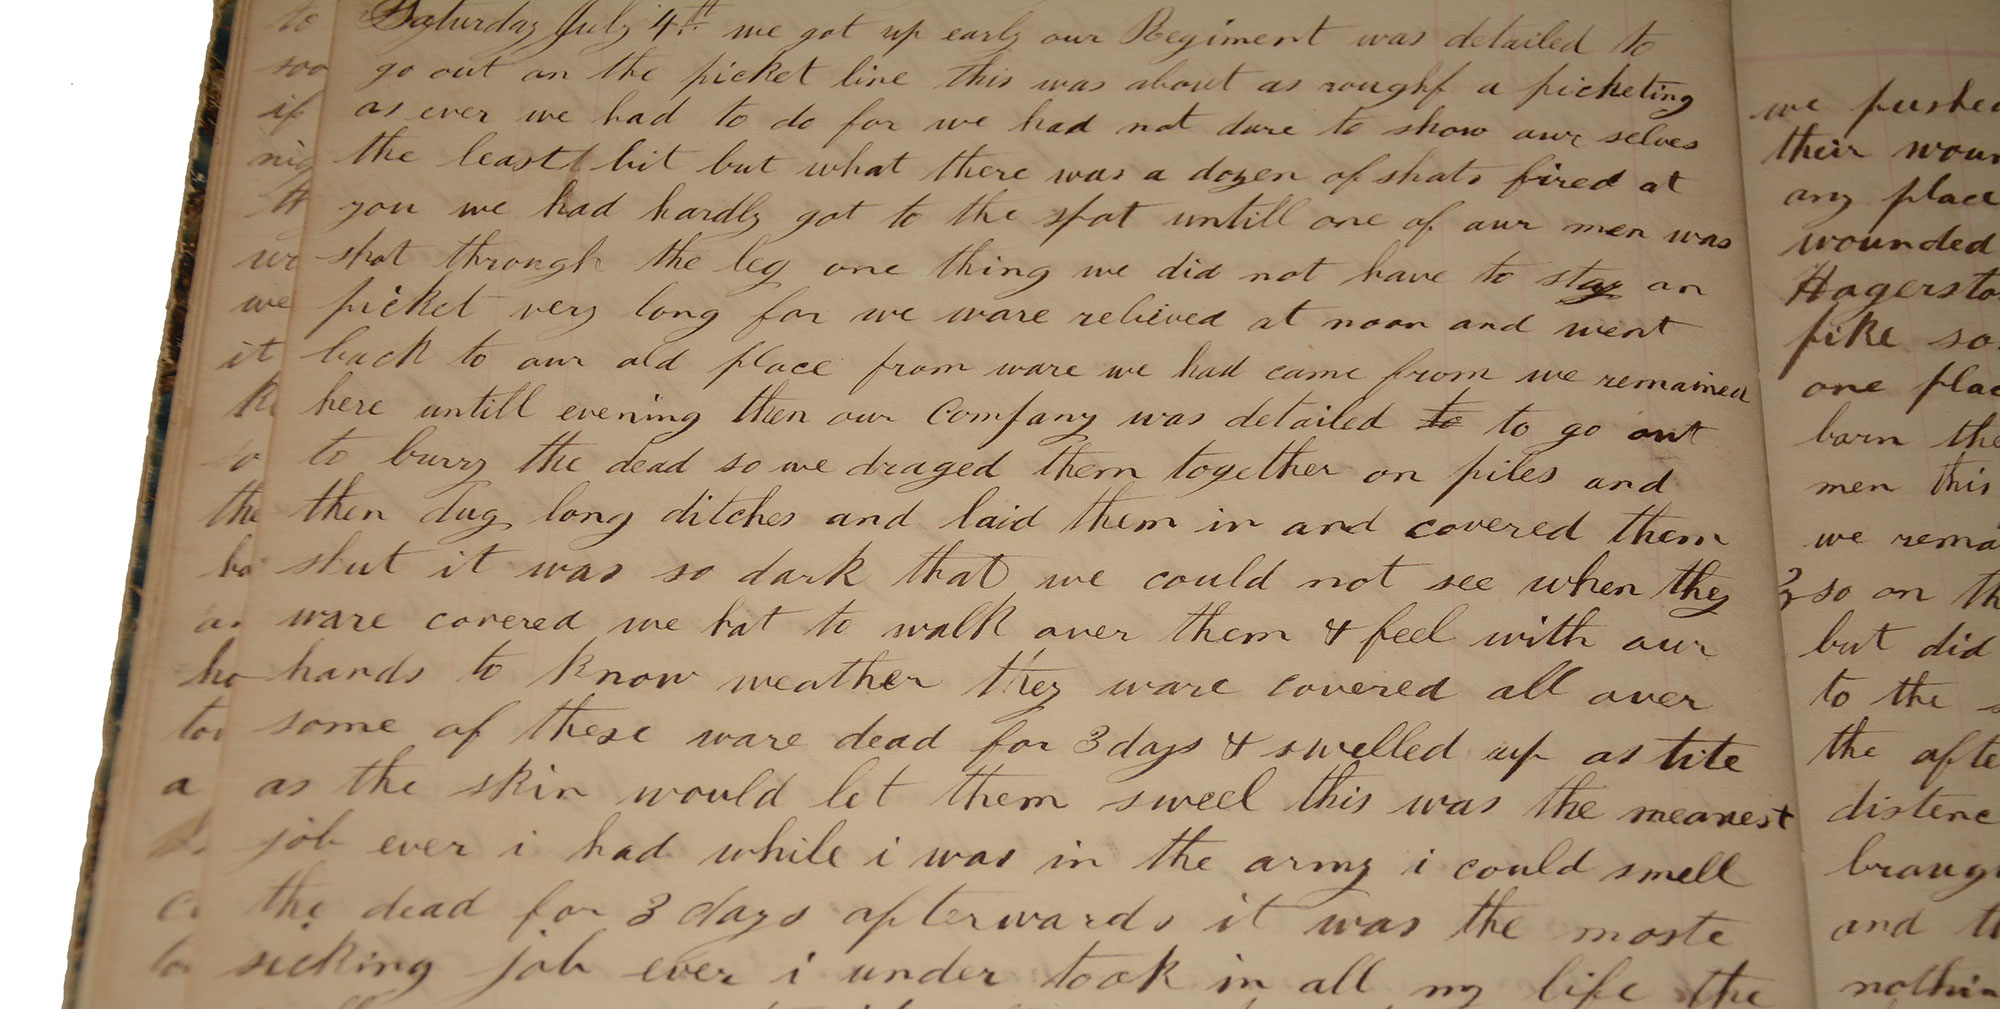 Saturday July 4th we got up early our Regiment was detailed to
go out on the picket line this was about as roughf a picketing
as ever we had to do for we had not dare to show our selves
the least bit but what there was a dozen of shots fired at
you we had hardly got to the spot untill one of our men was
shot through the leg one thing we did not have to stay on
picket very long for we ware relieved at noon and went
back to our old place from ware we had came from we remained
here untill evening then our Company was detailed to to go out
to burry the dead so we draged them together on piles and
then dug long ditches and laid them in and covered them
shut it was so dark that we could not see when they
ware covered we hat to walk over them & feel with our
hands to know weather they ware covered all over
some of these ware dead for 3 days & swelled up as tite
as the skin would let them sweel this was the meanest
job ever i had while i was in the army i could smell
the dead for 3 days afterwards it was the moste
sicking job ever i under took in all my life the
to
soo
if
we
it
the
ho
a
we pushed
their
any place
wounded
pike so
one
barn the
men this
we
so on
but did
to the
the
and